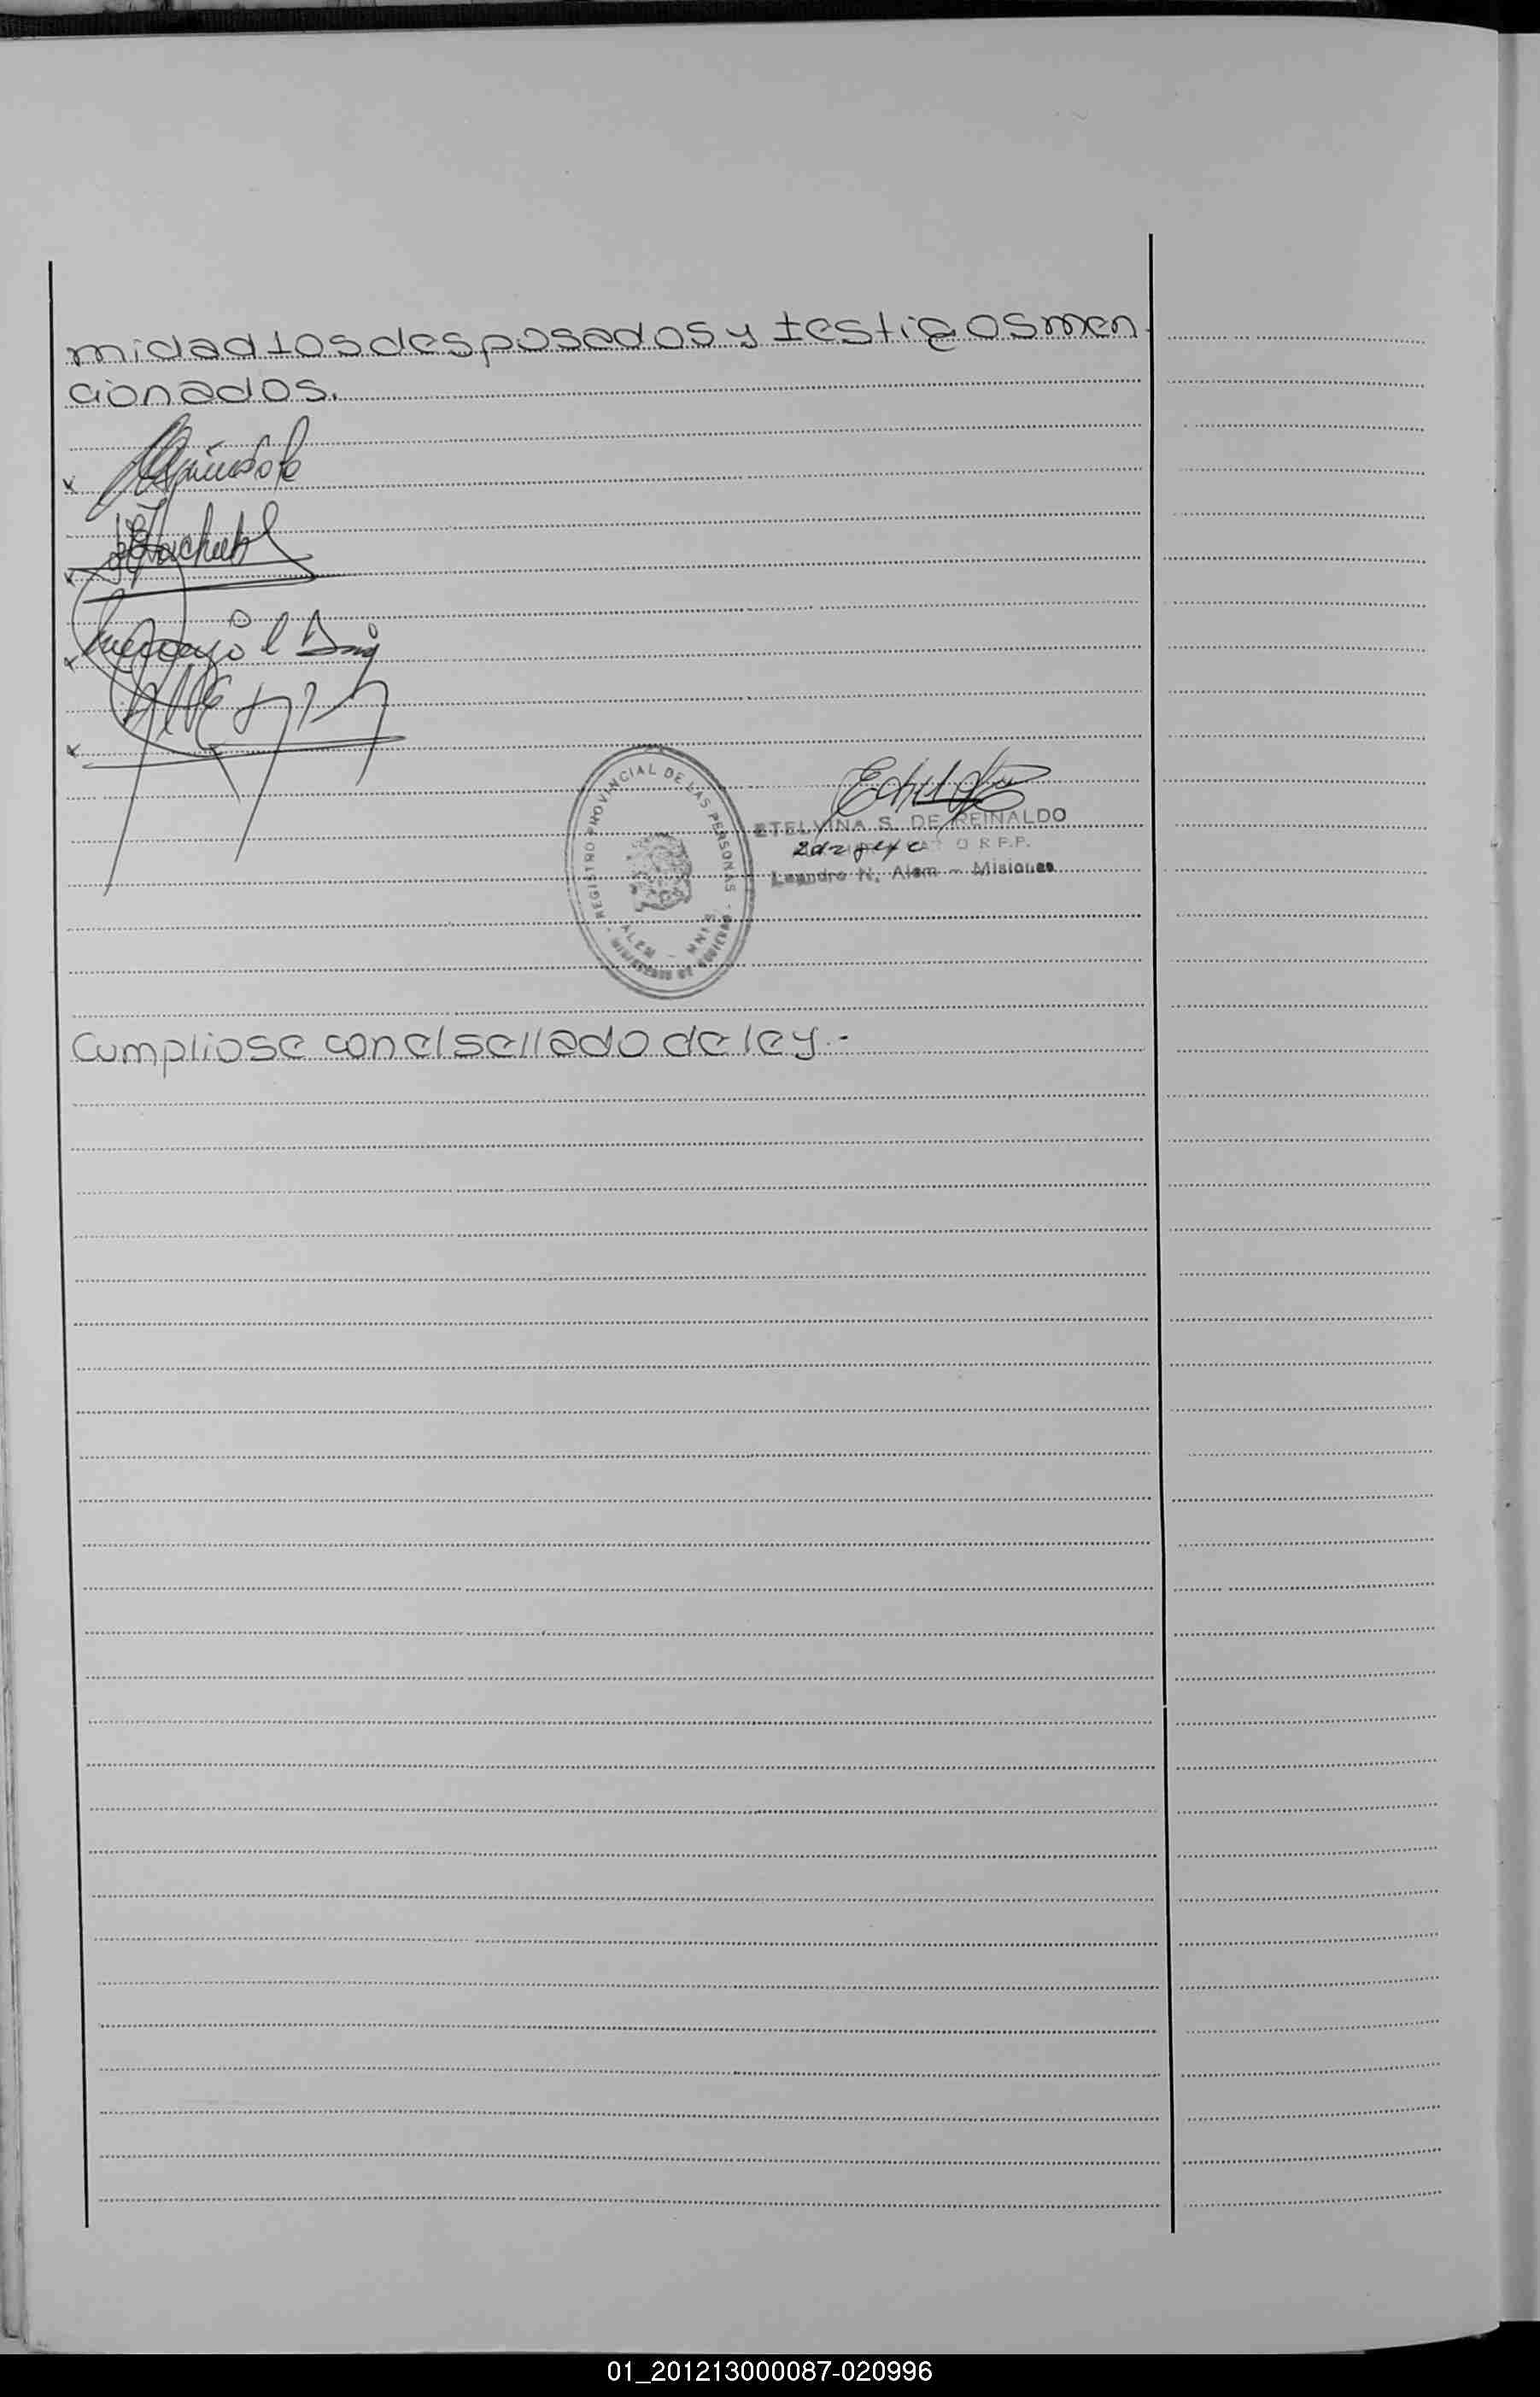 midad los desposados y testigos men
cionados.
REGISTRO PROVINCIAL DE LAS PERSONAS
ALEM - MNES
MINISTERIO DE GOBIERNO
ETELVINA S. DE REINALDO
O R P.P.
Leandro N. Alem - Misiones
Cumpliose con el sellado de ley.-
01_201213000087-020996